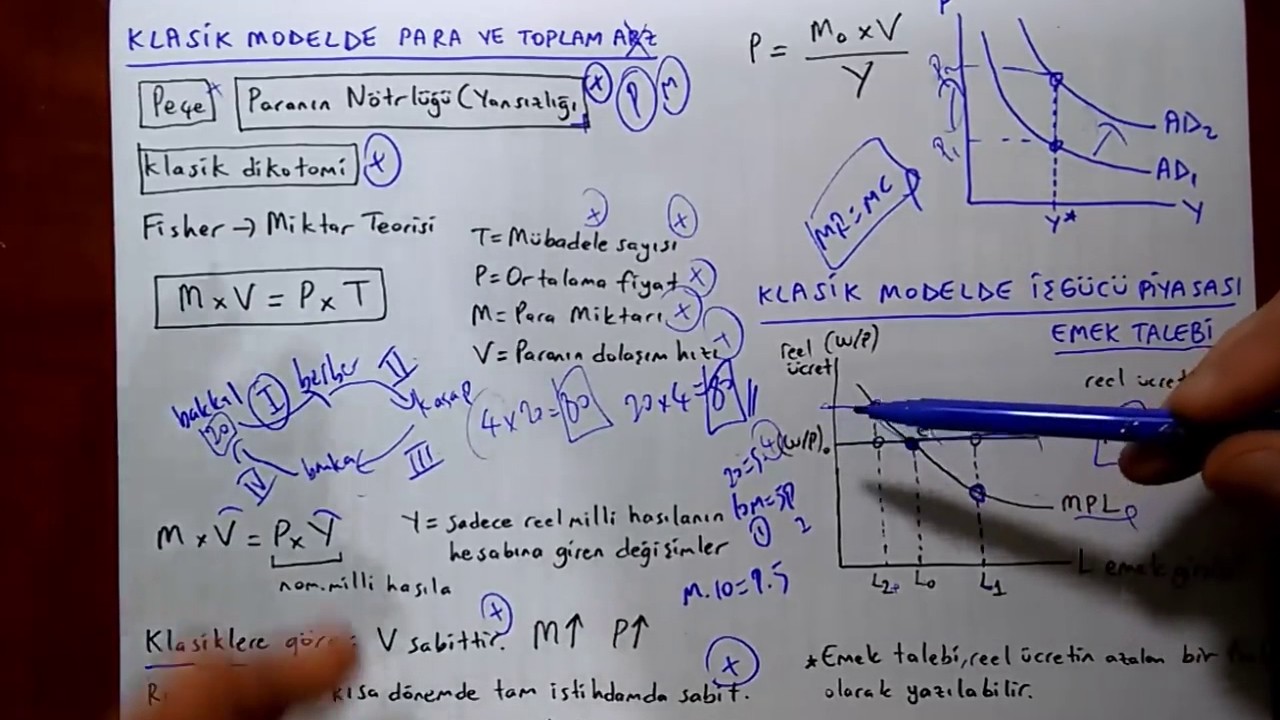 KLASİK MODELDE PARA VE TOPLAM ARZ
Peçe
Paranın Nötrlüğü (Yansızlığı
P
M
Klasik dikotomi
Fisher → Miktar Teorisi
M x V = P x T
T = Mübadele sayısı
P = Ortalama fiyat
M = Para Miktarı
V = Paranın dolaşım hızı
bakkal
I
berber
II
kasap
20
IV
banka
III
4 x 20 = 80
20 x 4 = 80
M x V = P x Y
nom. milli hasıla
Y = sadece reel milli hasılanın
hesabına giren değişimler
M.10 = 9.5
Klasiklere göre: V sabittir. M↑ P↑
kısa dönemde tam istihdamda sabit.
P = M₀ x V / Y
P
P₂
P₁
AD₂
AD₁
Y*
Y
MR = MC
KLASİK MODELDE İŞGÜCÜ PİYASASI
EMEK TALEBİ
reel (W/P)
ücret
reel ücret
(W/P)₀
MPL
L₂
L₀
L₁
L emek
*Emek talebi, reel ücretin azalan bir
olarak yazılabilir.